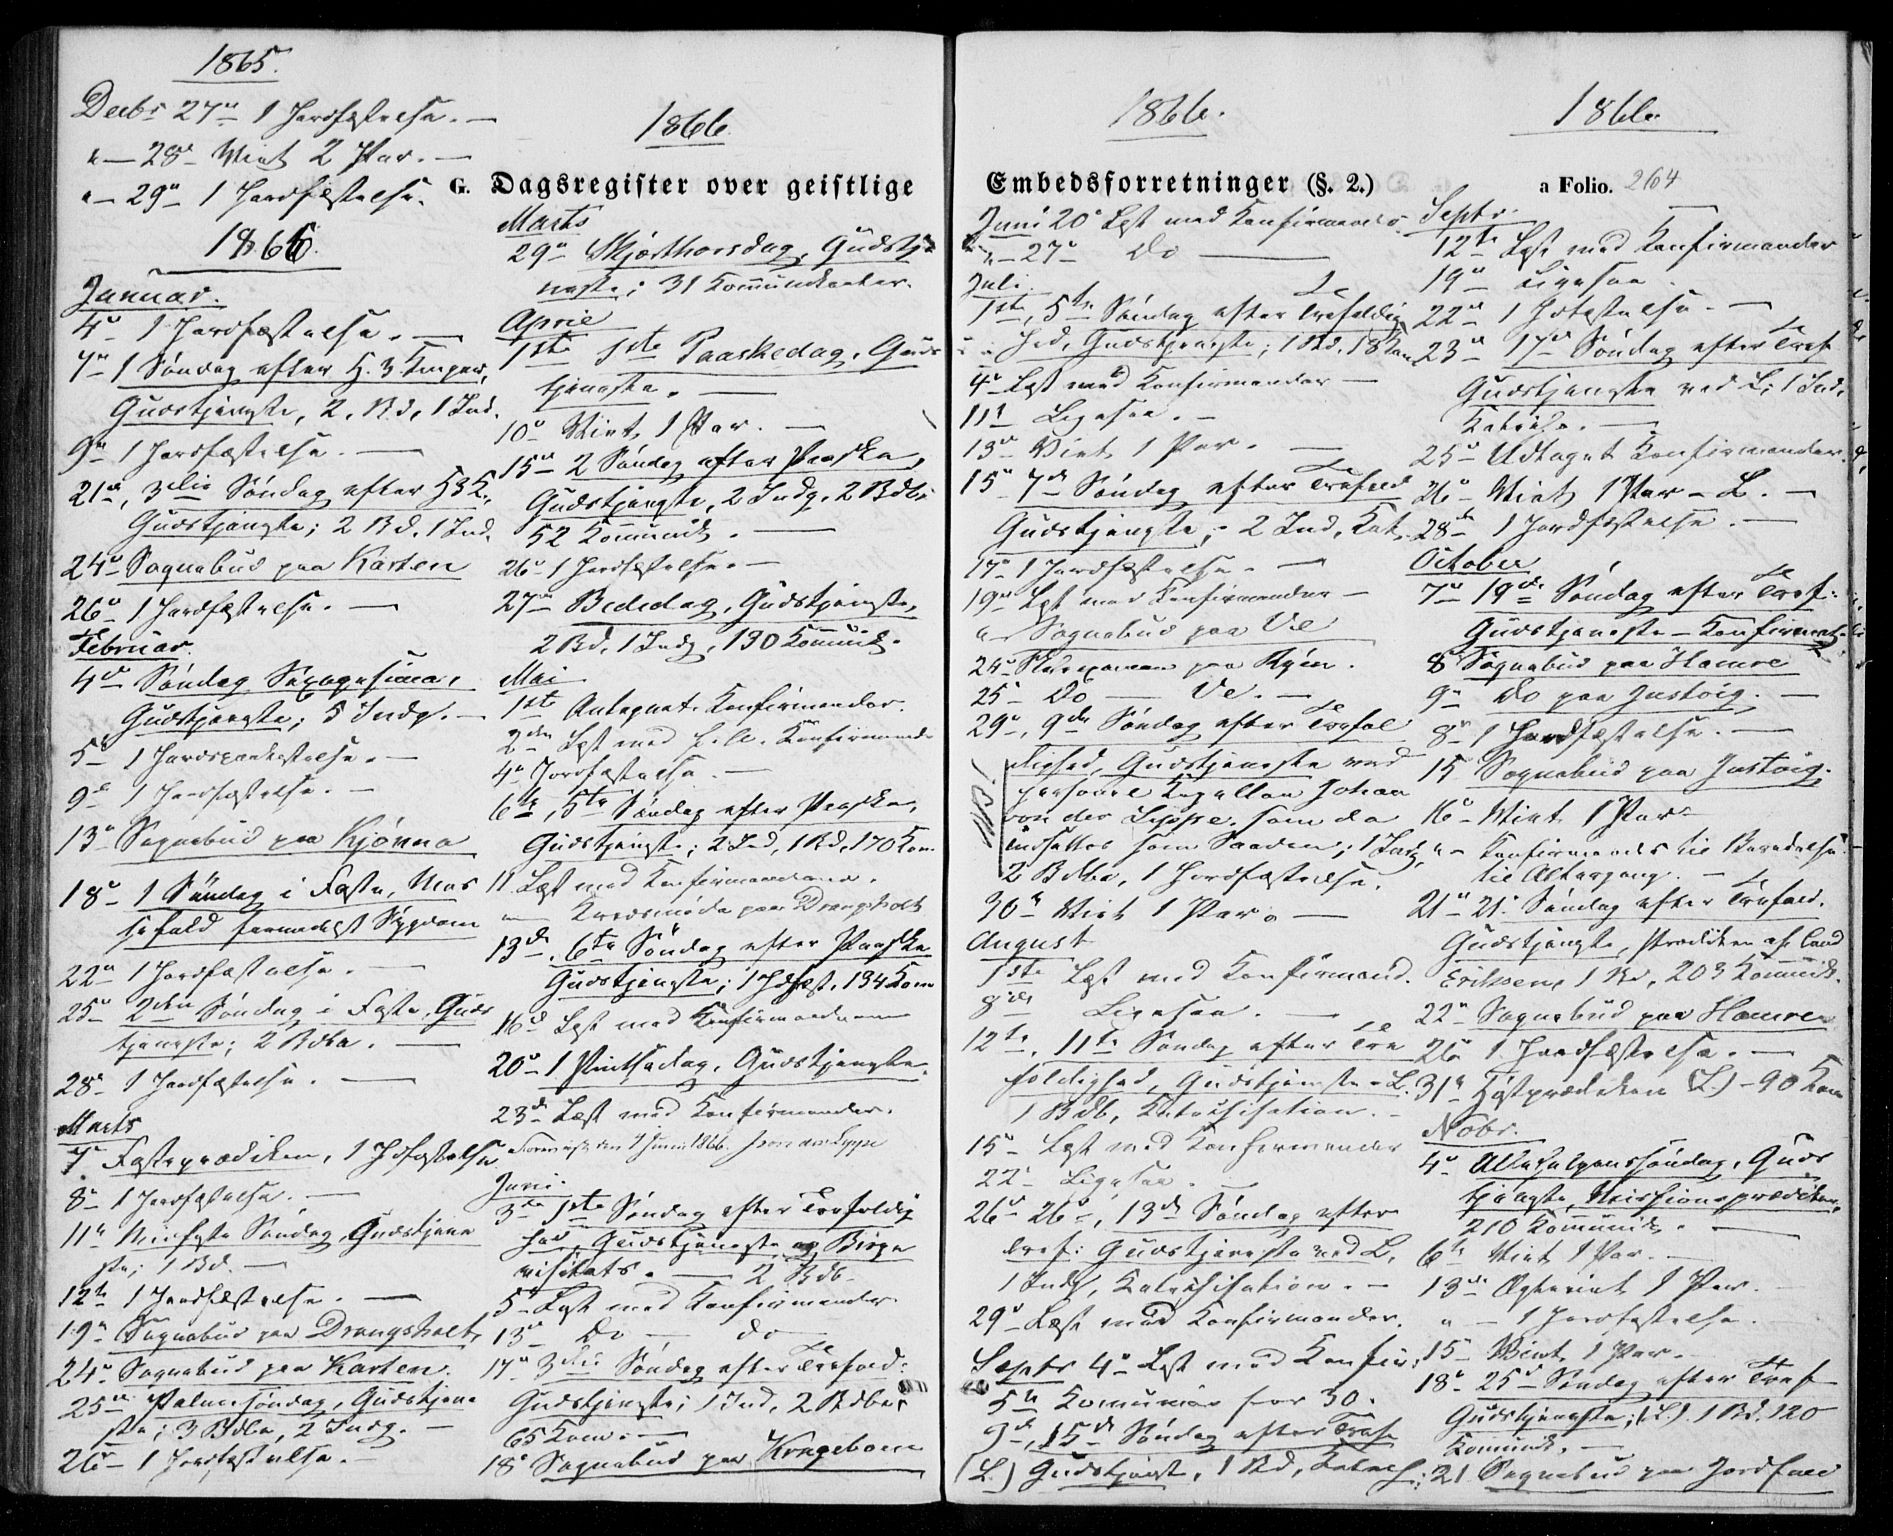 1865.
Decbr 27de 1 Jordfæstelse. —
" — 28de Viet 2 Par. —
" — 29de 1 Jordfæstelse.
1866.
Januar.
4de 1 Jordfæstelse. —
7de 1 Søndag efter H. 3 Konger,
Gudstjeneste, 2 Bd, 1 Ind.
9de 1 Jordfæstelse. —
21de, 3die Søndag efter H3K.,
Gudstjeneste; 2 Bd. 1 Ind.
24de Sognebud paa Karten
26de 1 Jordfæstelse. —
Februar.
4de Søndag Sexagesima,
Gudstjeneste; 5 Indg. —
5te 1 Jordspaakastelse. —
9de 1 Jordfæstelse. —
13de Sognebud paa Kjønna
18de 1 Søndag i Faste, Mes
sefald formedelst Sygdom
22de 1 Jordfæstelse. —
25de 2den Søndag i Faste, Guds
tjeneste; 2 Bdbe. —
28de 1 Jordfæstelse. —
Marts
7de Fasteprædiken, 1 Jdfæstelse
8de 1 Jordfæstelse. —
11te Midfaste Søndag, Gudstjene
ste; 1 Bd. —
12te 1 Jordfæstelse. —
19de Sognebud paa Drangsholt
24de Sognebud paa Karten.
25de Palmesøndag, Gudstjene
ste; 3 Bdbe, 2 Indg. —
26de 1 Jordfæstelse. —
1866.
G. Dagsregister over geistlige
Marts
29de Skjærthorsdag, Gudstje
neste; 31 Kommunikanter.
April
1ste 1ste Paaskedag, Guds
tjeneste. —
10de Viet 1 Par. —
15de 2 Søndag efter Paaske,
Gudstjeneste, 2 Indg, 2 Bdbe
52 Kommunik. —
26de 1 Jordfæstelse. —
27de Bededag, Gudstjeneste,
2 Bd, 1 Indg, 130 Kommunik.
Mai
1ste Antegnet Konfirmander.
2den Læst med Konfirmande
4de Jordfæstelse. —
6te, 5te Søndag efter Paaske,
Gudstjeneste; 2 Ind, 1 Bd, 170 Kom.
11 Læst med Konfirmanderne.
" — Kredsmøde paa Drangsholt
13de, 6te Søndag efter Paaske
Gudstjeneste; 1 Jdfæst. 134 Kom
16de Læst med Konfirmanderne
20de 1 Pintsedag, Gudstjeneste.
23de Læst med Konfirmander.
den 2 Juni 1866. J von der Lippe
Juni.
3die 1ste Søndag efter Trefoldig
hed, Gudstjeneste og Bispe
visitats. — 2 Bdb.
5te Læst med Konfirmander.
13de do — do
17de 3die Søndag efter Trefold:
Gudstjeneste; 1 Ind, 2 Bdbe,
65 Kom. —
18de Sognebud paa Kongebone
1866.
Embedsforretninger (§. 2.)
Juni 20de Læst med Konfirmander
" — 27de Do —
Juli.
1ste, 5te Søndag efter Trefoldig
hed, Gudstjeneste; 1 Bd. 18 Kom
4de Læst med Konfirmander —
11te Ligesaa. —
13de Viet 1 Par. —
15de 7de Søndag efter Trefold
Gudstjeneste; 2 Ind, Kat.
17de 1 Jordfæstelse. —
19de Læst med Konfirmander —
" — Sognebud paa Ve
24de Skoleexamen paa Ryen.
25de Do — Ve. —
29de, 9de Søndag efter Trefol
dighed, Gudstjeneste ved
personel Kapellan Johan
von der Lippe, som da
indsattes som saadan; 1 Indg,
2 Bdbe, 1 Jordfæstelse.
30te Viet 1 Par. —
August
1ste Læst med Konfirmand.
8de Ligesaa. —
12te, 11te Søndag efter Tre
foldighed, Gudstjeneste — L.
1 Bdb, Katekisation. —
15de Læst med Konfirmander
22de Ligesaa. —
26de 26de, 13de Søndag efter
Tref: Gudstjeneste ved L.
1 Indg, Katekisation. —
29de Læst med Konfirmander.
Septr 4de Læst med Konfir:
5te Kommunion for 30.
9de, 15de Søndag efter Tref
(L.) Gudstjenest, 1 Bd, Katech:
1866.
a Folio. 264
Septr.
12te Læst med Konfirmander
19de Ligesaa
22de 1 Jdfæstelse. —
23de 17de Søndag efter Tref
Gudstjeneste ved L; 1 Ind,
Katekis. —
25de Udtaget Konfirmander.
26de Viet 1 Par — L. —
28de 1 Jordfæstelse. —
October
7de 19de Søndag efter Tref:
Gudstjeneste — Konfirmat.
8 Sognebud paa Hamre
9de do paa Justvig. —
8de 1 Jordfæstelse. —
15 Sognebud paa Justvig.
16de Viet 1 Par
" — Konfirmeredes til Beredelse
til Altergang. —
21de 21de Søndag efter Trefold.
Gudstjeneste, Prædiken af Cand
Eriksen, 1 Bd, 203 Kommunik.
22de Sognebud paa Hamre
26de 1 Jordfæstelse. —
31te Høstprædiken (L.) — 90 Kom
Novbr.
4de Allehelgenssøndag, Guds
tjeneste, Missionsprædiken,
210 Kommunik. —
6te Viet 1 Par. —
13de Ægteviet 1 Par.
" — 1 Jordfæstelse.
15de Viet 1 Par. —
18de 25de Søndag efter Tref
Gudstjeneste; (L.). 1 Bd. 120
Kommunik. —
21 Sognebud paa Jordfald